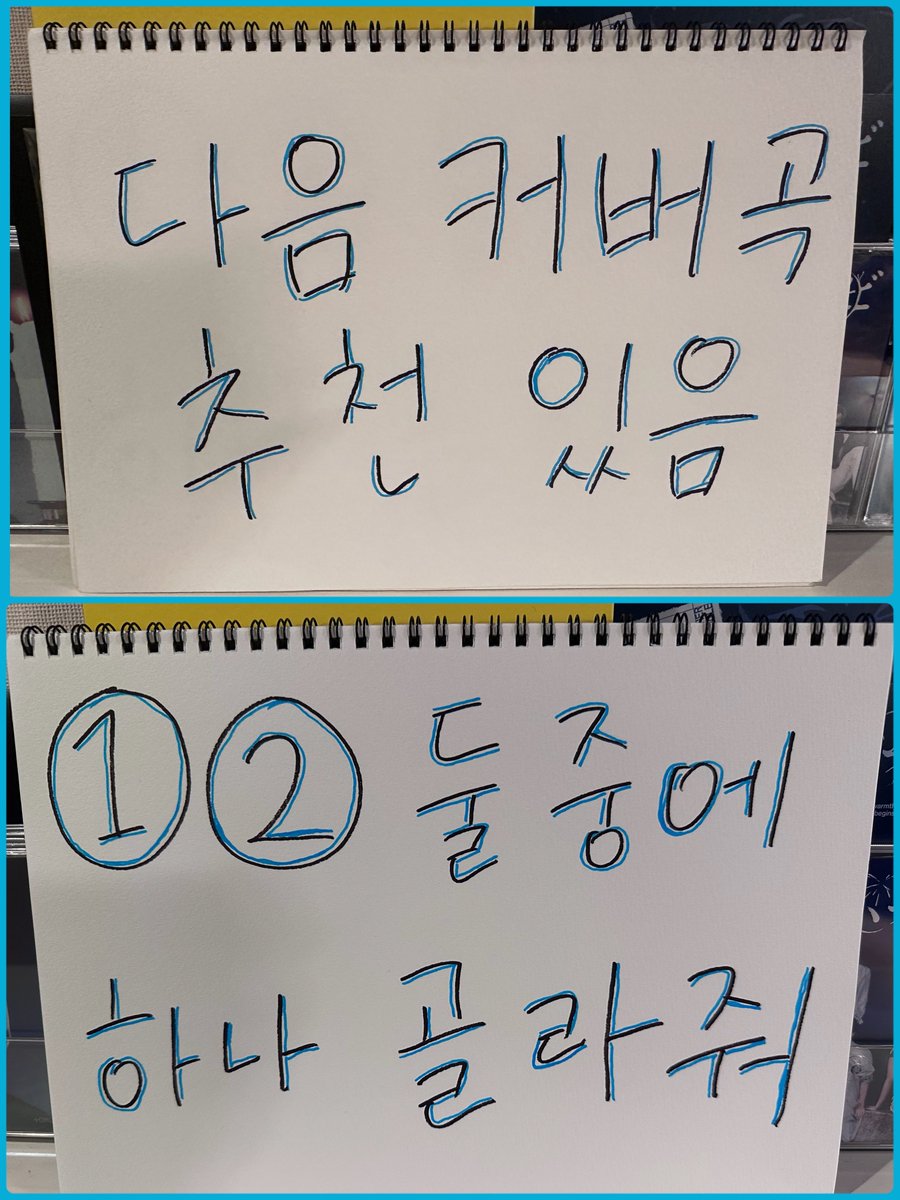 다음 커버곡
추천 있음
① ② 둘 중에
하나 골라줘